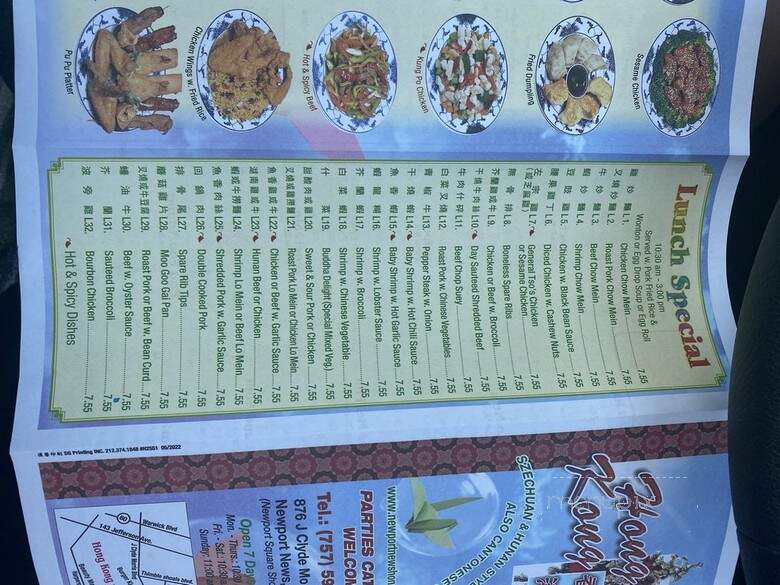 Sesame Chicken
Fried Dumpling
Kung Po Chicken
Hot & Spicy Beef
Chicken Wings w. Fried Rice
Pu Pu Platter
Lunch Special
10:30 am - 3:00 pm
Served w. Pork Fried Rice &
Wonton or Egg Drop Soup or Egg Roll
雞炒麵 L1. Chicken Chow Mein 7.55
叉燒炒麵 L2. Roast Pork Chow Mein 7.55
牛炒麵 L3. Beef Chow Mein 7.55
蝦炒麵 L4. Shrimp Chow Mein 7.55
豆豉雞 L5. Chicken w. Black Bean Sauce 7.55
腰果雞丁 L6. Diced Chicken w. Cashew Nuts 7.55
左宗雞 L7. General Tso's Chicken
(或芝麻雞) or Sesame Chicken 7.55
無骨排 L8. Boneless Spare Ribs 7.55
芥蘭雞或牛 L9. Chicken or Beef w. Broccoli 7.55
干燒牛肉絲 L10. Day Sauteed Shredded Beef 7.55
牛肉什碎 L11. Beef Chop Suey 7.55
白菜叉燒 L12. Roast Pork w. Chinese Vegetables 7.55
青椒牛 L13. Pepper Steak w. Onion 7.55
干燒蝦 L14. Baby Shrimp w. Hot Chili Sauce 7.55
魚香蝦 L15. Baby Shrimp w. Hot Garlic Sauce 7.55
蝦龍糊 L16. Shrimp w. Lobster Sauce 7.55
芥蘭蝦 L17. Shrimp w. Broccoli 7.55
白菜蝦 L18. Shrimp w. Chinese Vegetable 7.55
什菜 L19. Buddha Delight (Special Mixed Veg.) 7.55
甜酸肉或雞 L20. Sweet & Sour Pork or Chicken 7.55
叉燒或雞撈麵 L21. Roast Pork Lo Mein or Chicken Lo Mein 7.55
魚香雞或牛 L22. Chicken or Beef w. Garlic Sauce 7.55
湖南雞或牛 L23. Hunan Beef or Chicken 7.55
蝦或牛撈麵 L24. Shrimp Lo Mein or Beef Lo Mein 7.55
魚香肉絲 L25. Shredded Pork w. Garlic Sauce 7.55
回鍋肉 L26. Double Cooked Pork 7.55
排骨尾 L27. Spare Rib Tips 7.55
蘑菇雞片 L28. Moo Goo Gai Pan 7.55
叉燒或牛豆腐 L29. Roast Pork or Beef w. Bean Curd 7.55
蠔油牛 L30. Beef w. Oyster Sauce 7.55
芥蘭 L31. Sauteed Broccoli 7.55
波旁雞 L32. Bourbon Chicken 7.55
Hot & Spicy Dishes
SG Printing INC. 212.374.1848 #H2551 05/2022
Hong Kong
SZECHUAN & HUNAN STY
ALSO CANTONESE
www.newportnewshon
PARTIES CAT
WELCOM
Tel.: (757) 59
876 J Clyde Mo
Newport News,
(Newport Square Sho
Open 7 Da
Mon. - Thurs.: 10:
Fri. - Sat.: 10:30
Sunday: 11:
Warwick Blvd
60
143 Jefferson Ave.
J Clyde Morris Blvd
Thimble shoals blvd.
Hong Kong